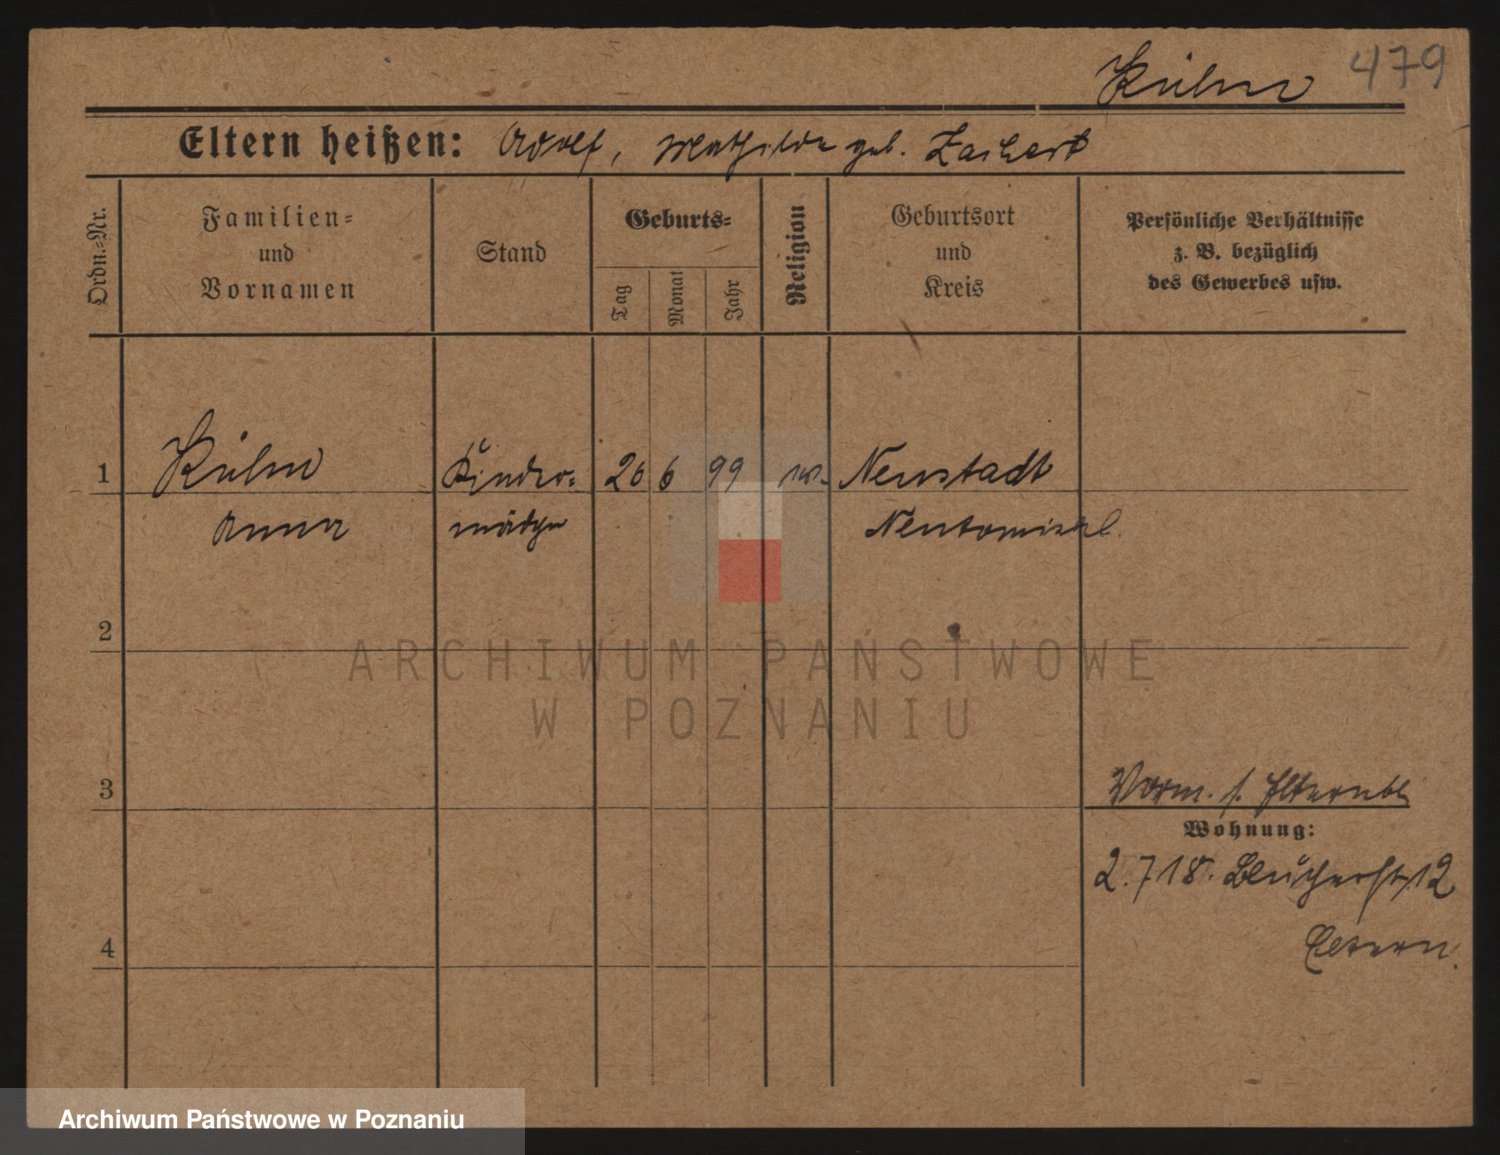 Kühn 479
Eltern heißen: Adolf, Mathilde geb. Zachert
Ordn.=Nr.
Familien=
und
Vornamen
Stand
Geburts=
Tag
Monat
Jahr
Religion
Geburtsort
und
Kreis
Persönliche Verhältnisse
z. B. bezüglich
des Gewerbes usw.
1 Kühn Kinder= 26 6 99 Neustadt
Anna mädchen Neutomischl.
2
ARCHIWUM PAŃSTWOWE
W POZNANIU
3 Vorm. s. Elternbl.
Wohnung:
2.7.18. Blücherstr 12
4 Eltern.
Archiwum Państwowe w Poznaniu